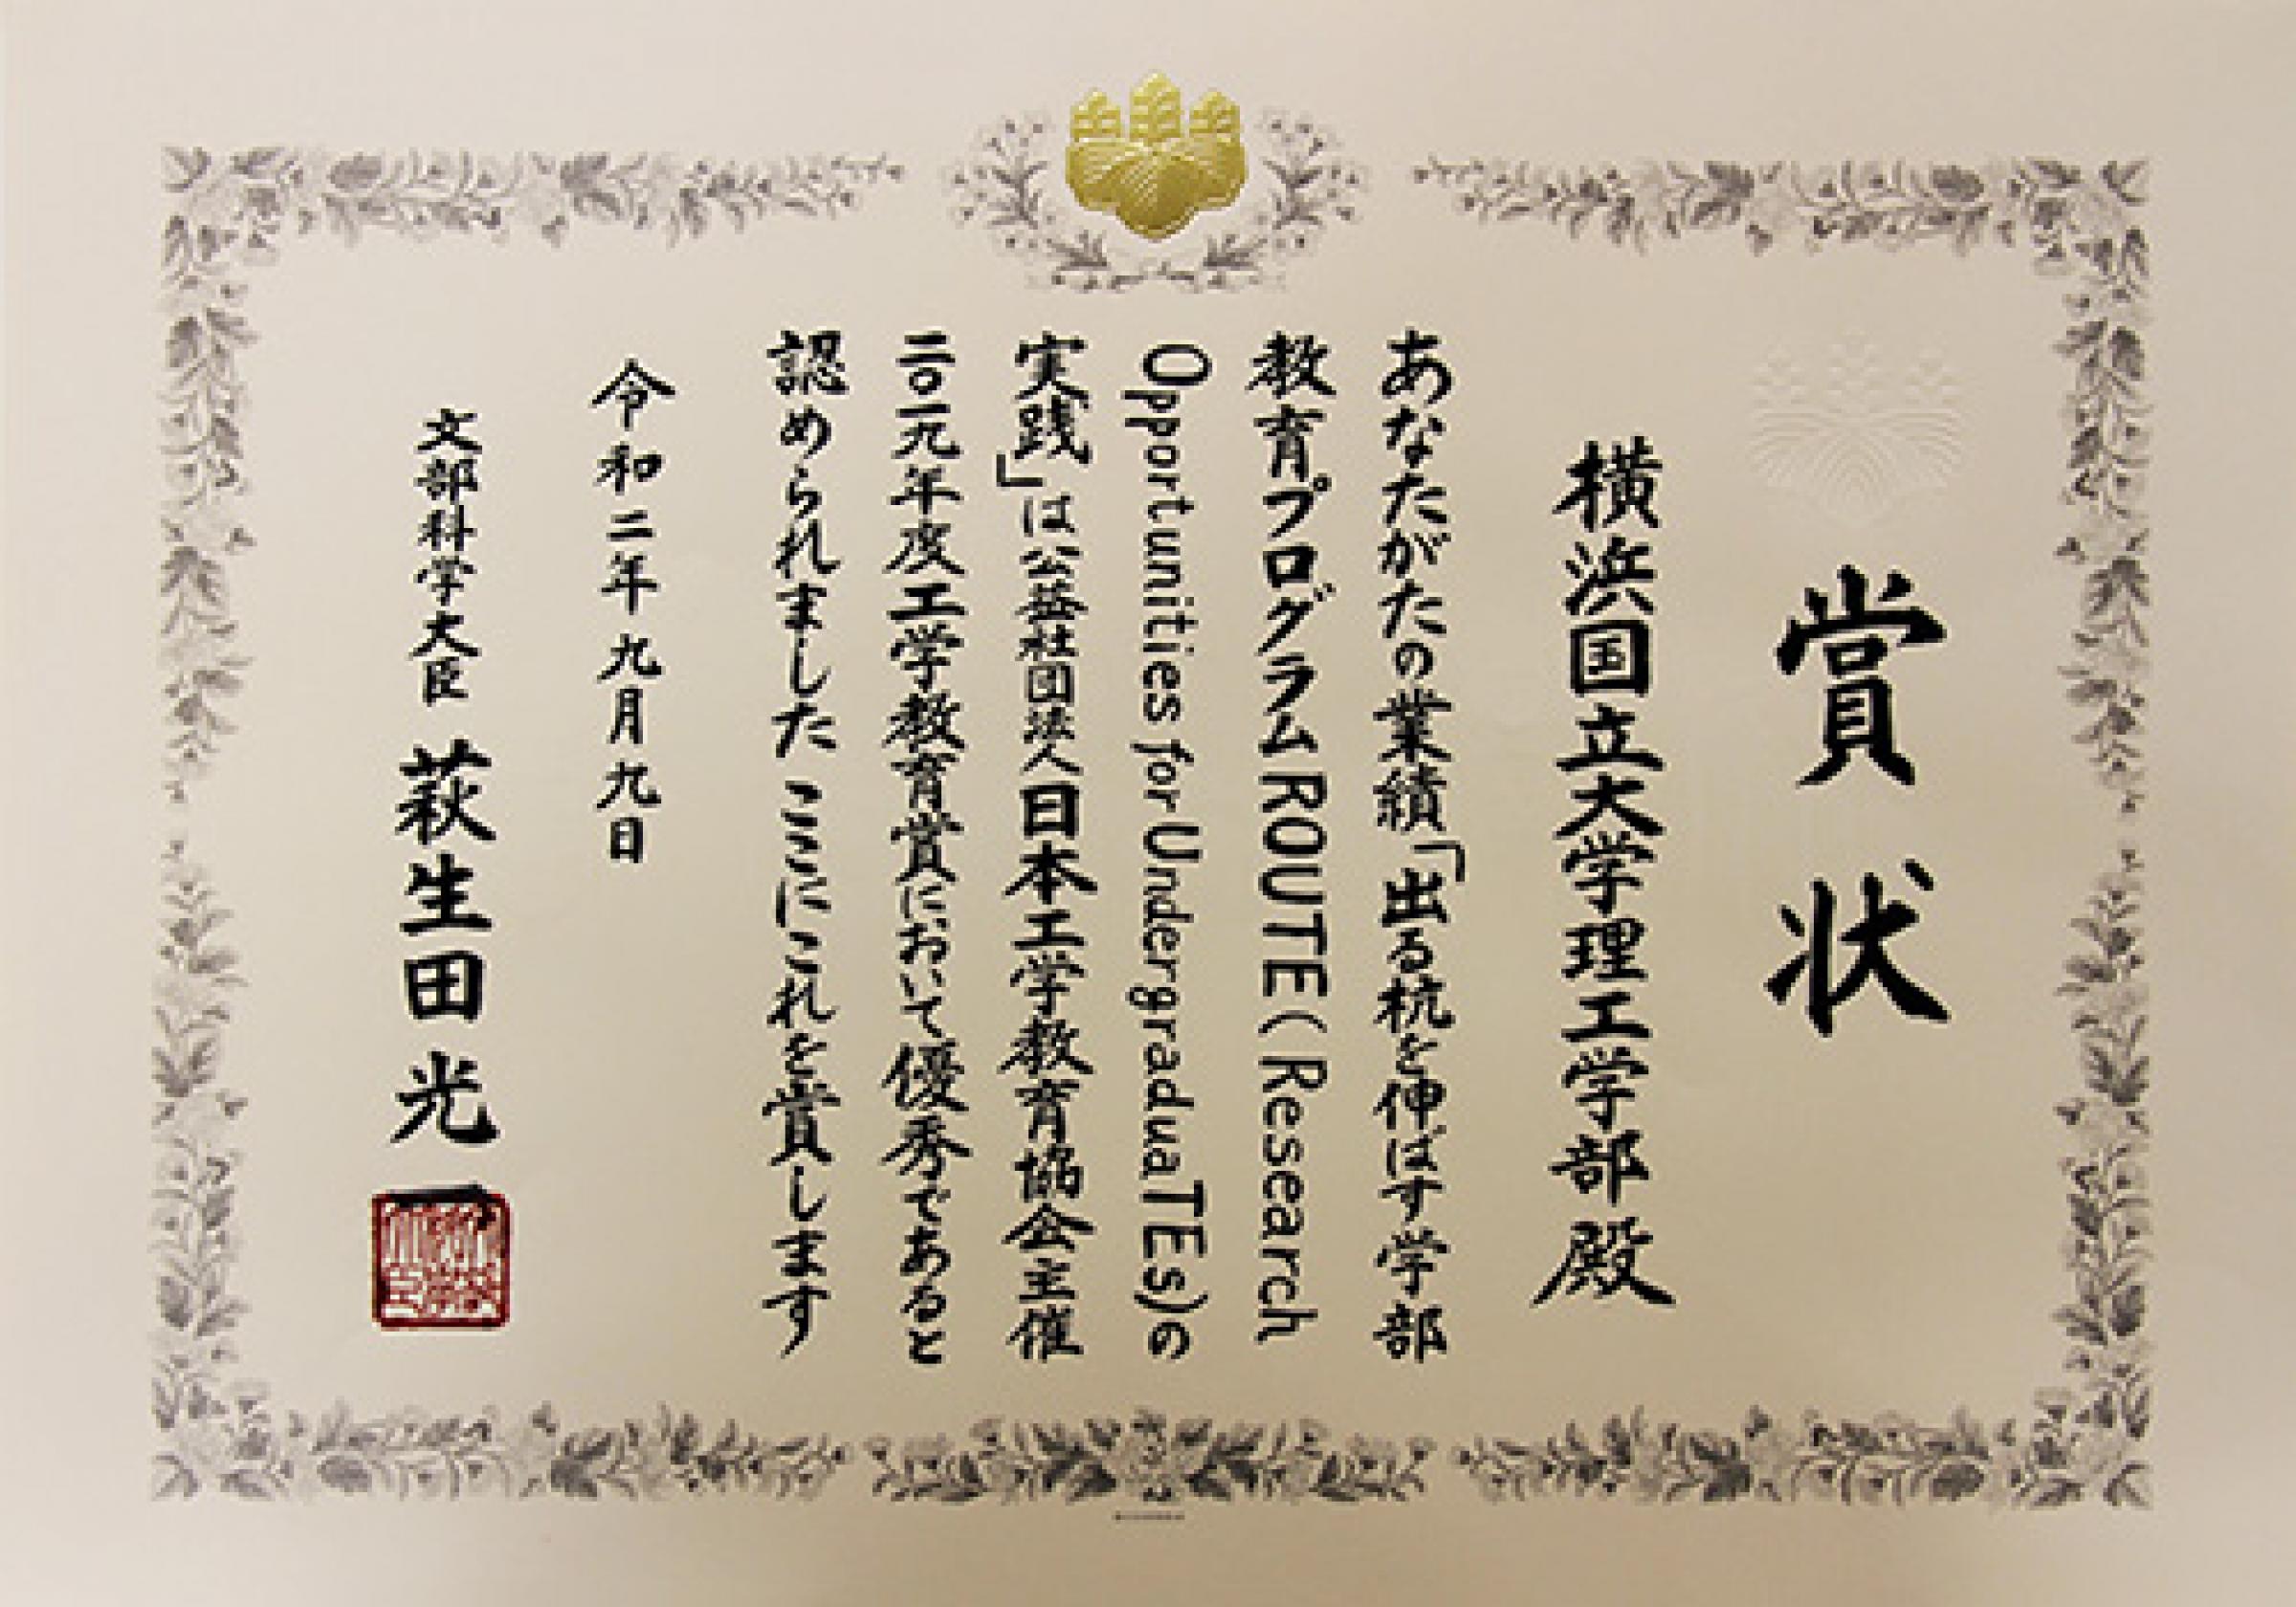 賞状
横浜国立大学理工学部殿
あなたがたの業績「出る杭を伸ばす学部
教育プログラムROUTE(Research
Opportunities for UndergraduaTEs)の
実践」は公益社団法人日本工学教育協会主催
二〇一九年度工学教育賞において優秀であると
認められました ここにこれを賞します
令和二年九月九日
文部科学大臣 萩生田光一